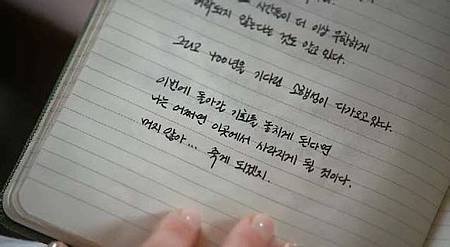 시간들이 더 이상 무한하게
허락되지 않는다는 것도 알고 있다.
그리고 400년을 기다린 소행성이 다가오고 있다.
이번에 돌아갈 기회를 놓치게 된다면
나는 어쩌면 이곳에서 사라지게 될 것이다.
머지 않아... 죽게 되겠지.